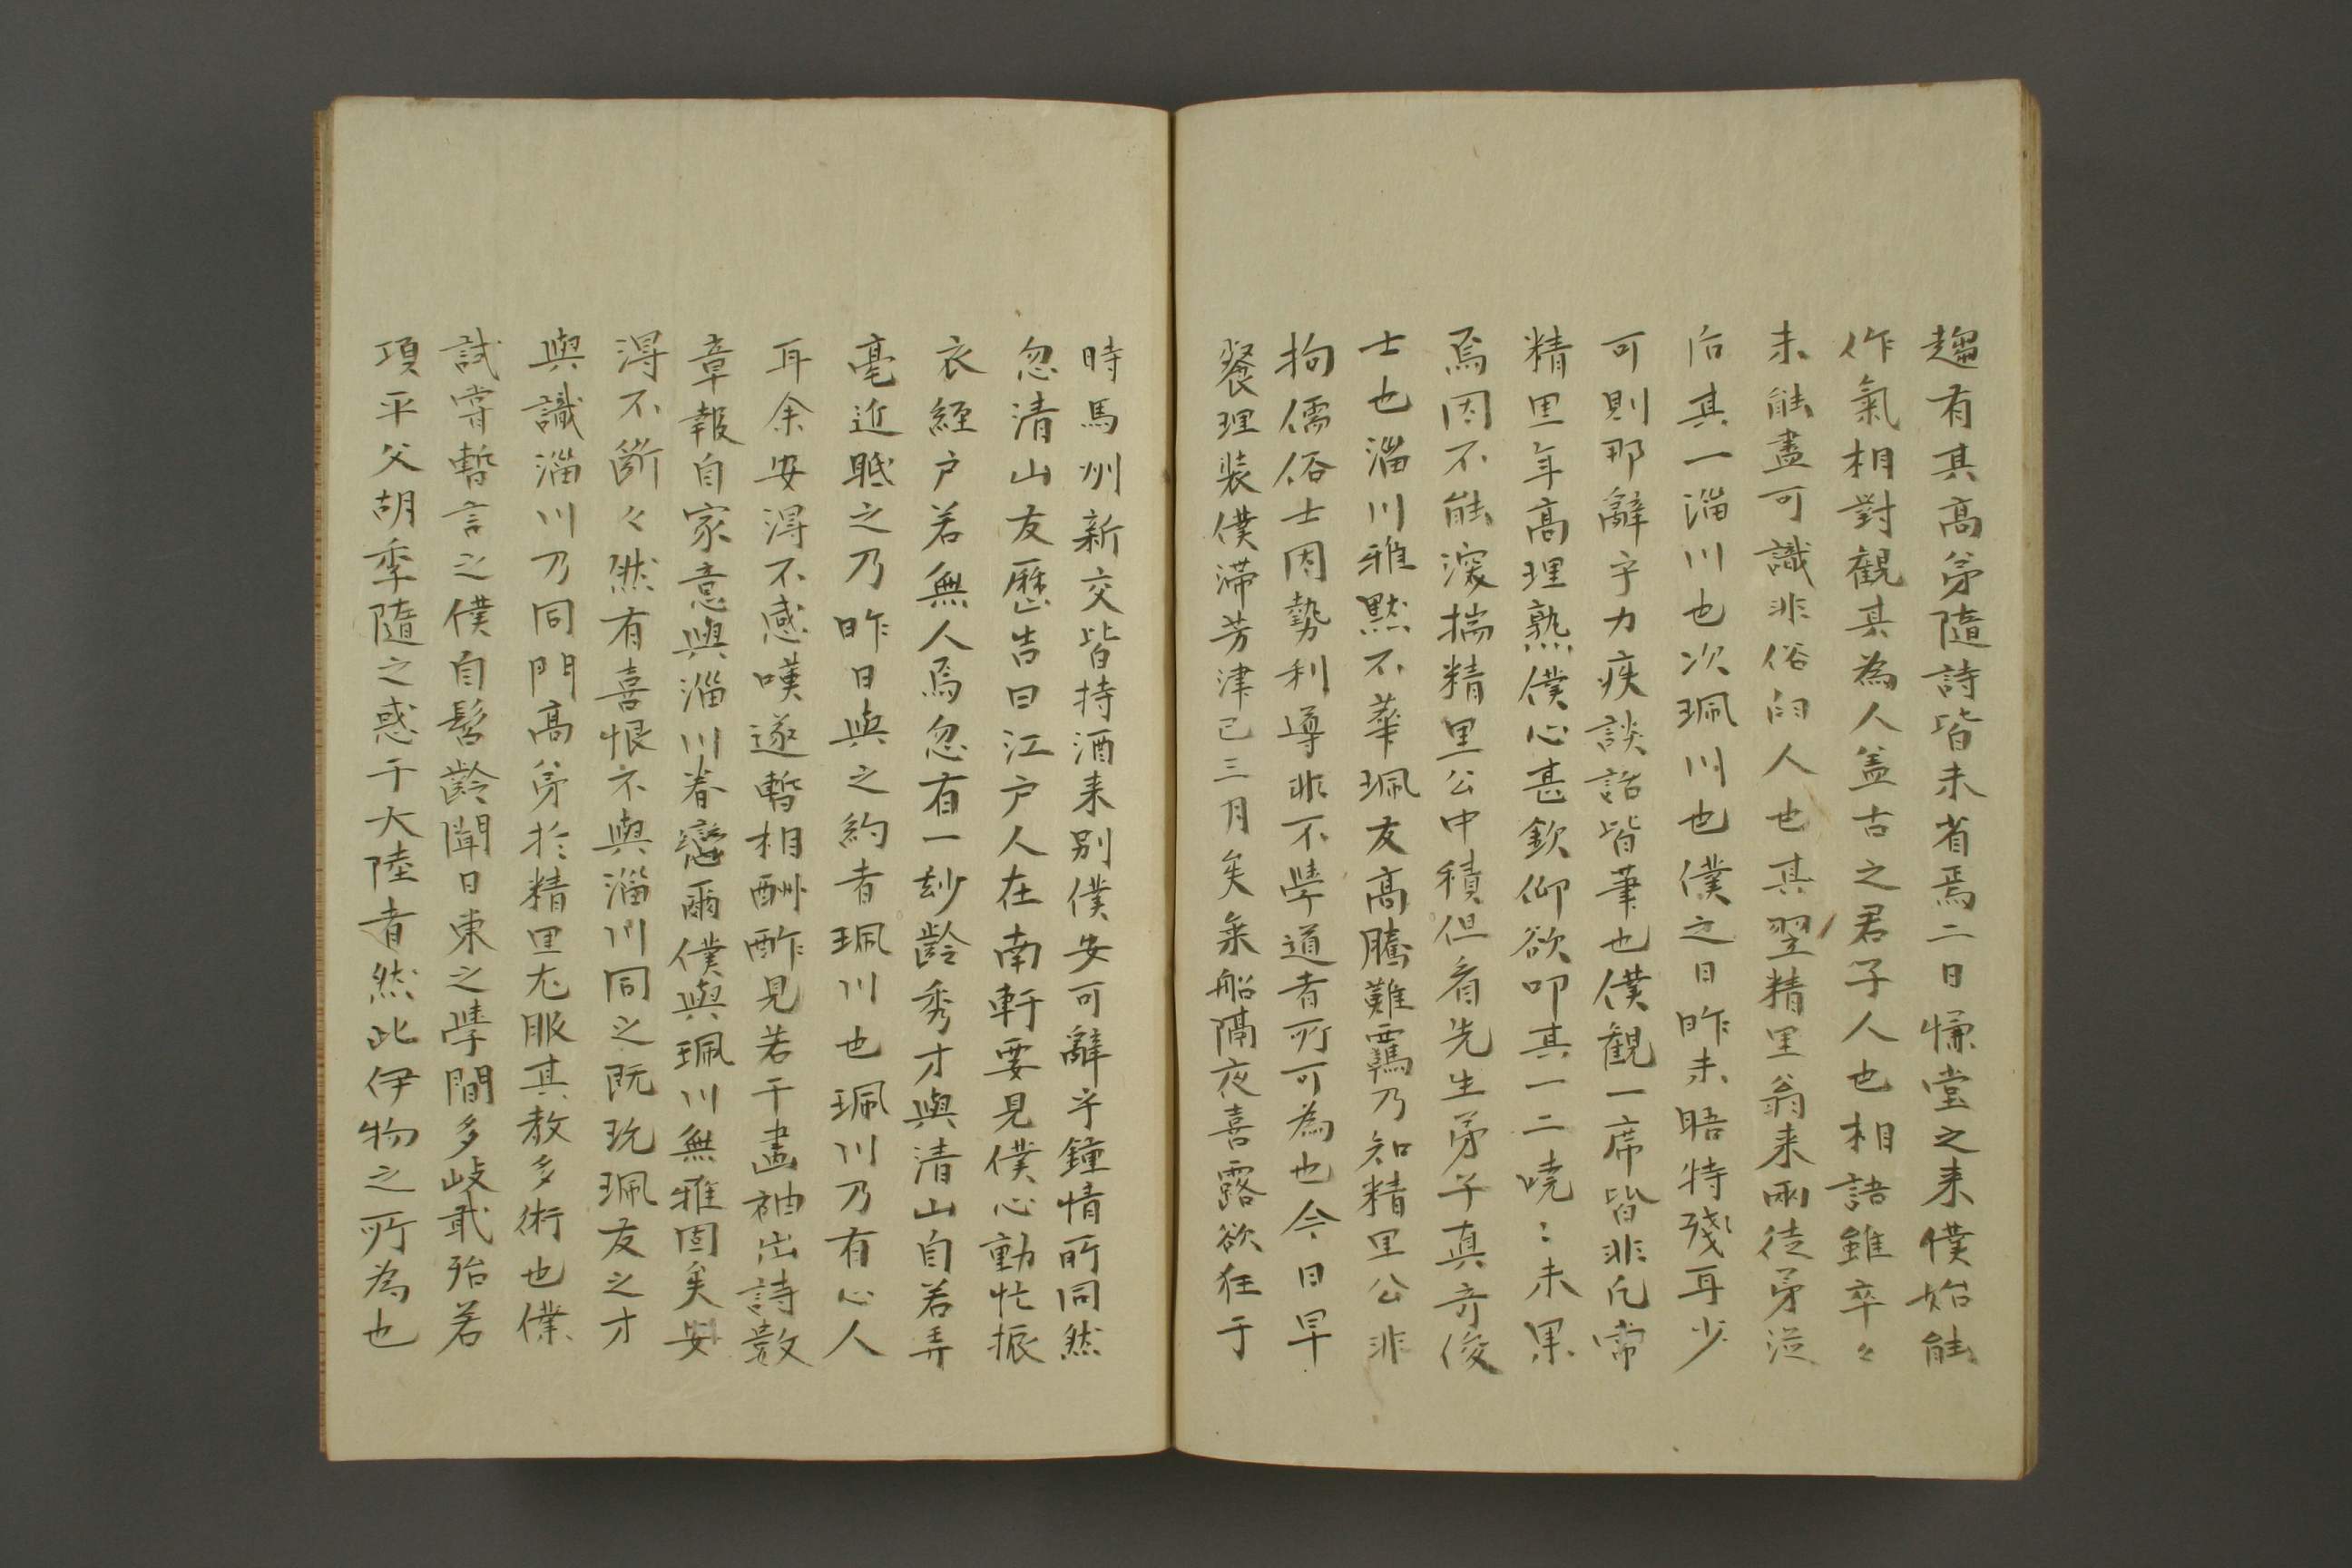 趨有其高弟隨詩皆未省焉二日慊堂之来僕始能
作氣相對觀其為人盖古之君子人也相語雖卒々
未能盡可識非俗的人也其翌精里翁来兩徒弟従
后其一淄川也次珮川也僕之日昨未晤特殘耳少
可則那辭乎力疾談話皆筆也僕觀一席皆非凡常
精里年高理熟僕心甚欽仰欲叩其一二嘵〻未果
焉因不能深揣精里公中積但看先生弟子真奇俊
士也淄川雅黙不華珮友高騰難覊乃知精里公非
拘儒俗士因勢利導非不學道者所可為也今日早
餐理装僕滞芳津已三月矣乗船隔夜喜露欲狂于
時馬州新交皆持酒来別僕安可辭乎鐘情所同然
忽清山友歴告曰江户人在南軒要見僕心動忙振
衣経户若無人焉忽有一玅齡秀才與清山自若弄
毫近眡之乃昨日與之約者珮川也珮川乃有心人
耳余安淂不感嘆遂暫相酬酢見若干畫袖出詩數
章報自家意與淄川眷戀爾僕與珮川無雅固矣安
淂不齗々然有喜恨不與淄川同之既玩珮友之才
與識淄川乃同門高弟於精里尤服其教多術也僕
試嘗暫言之僕自髫齡聞日東之學間多歧貳殆若
項平父胡季隨之惑于大陸者然此伊物之所為也